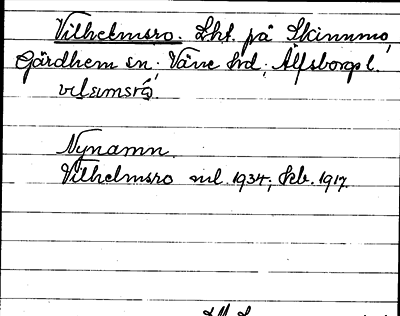 Vilhelmsro. Lht. på Skinnmo,
Gärdhem sn; Väne hd; Älfsborgs l.
vilamsró.
Nynamn.
Vilhelmsro ml. 1934; Skb. 1917.